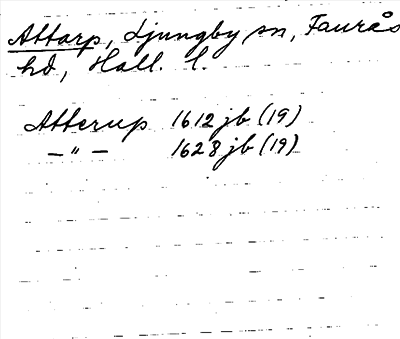 Attarp, Ljungby sn, Faurås
hd, Hall. l.
Atterup 1612 jb (19)
—"— 1628 jb (19)